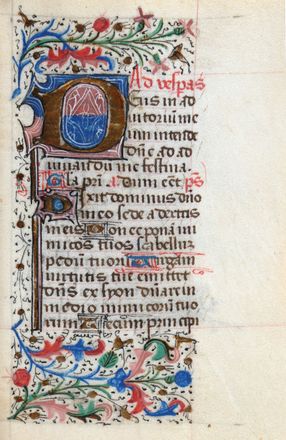 Ad vesp̄as
Deus in ad
iutorium me
um intende
dn̄e ad ad
iuuandū me festina.
Gla pri a. Dum eēt p̄s
Dixit dominus dn̄o
meo sede a dextris
meis Donec ponā ini
micos tuos scabellū
pedum tuorū Uirgam
uirtutis tue emittet
dn̄s ex syon dn̄are in
medio inimicorū tuo
rum Tecum principi